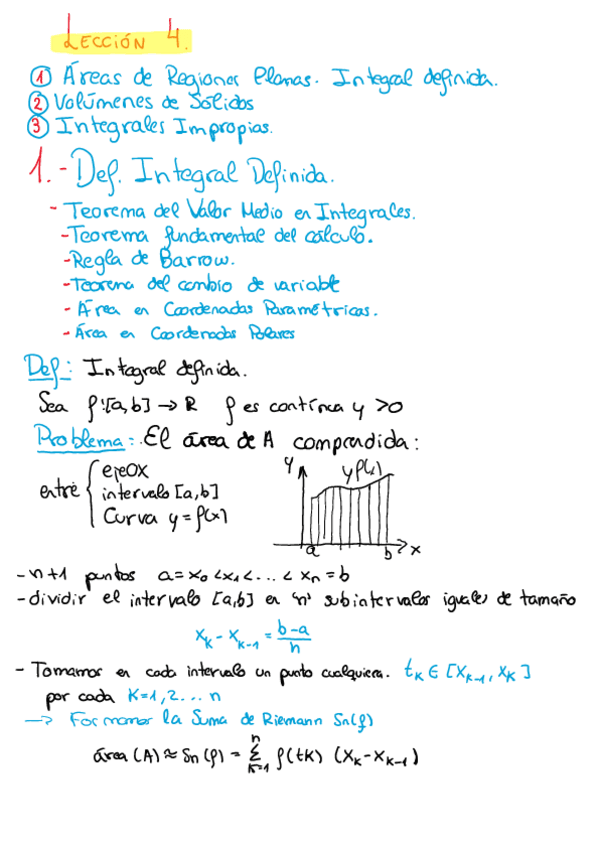 LECCIÓN 4.
① Áreas de Regiones Planas. Integral definida.
② Volúmenes de Sólidos
③ Integrales Impropias.
1.- Def. Integral Definida.
- Teorema del Valor Medio en Integrales.
- Teorema fundamental del cálculo.
- Regla de Barrow.
- Teorema del cambio de variable
- Área en Coordenadas Paramétricas.
- Área en Coordenadas Polares
Def.: Integral definida.
Sea f:[a,b] → R f es contínua y >0
Problema:. El área de A comprendida:
entre { eje OX
intervalo [a,b]
Curva y = f(x)
y y f(x)
a b x
- n+1 puntos a = x₀ < x₁ < ... < xₙ = b
- dividir el intervalo [a,b] en 'n' subintervalos iguales de tamaño
xₖ - xₖ₋₁ = (b-a)/n
- Tomamos en cada intervalo un punto cualquiera. tₖ ∈ [xₖ₋₁, xₖ]
por cada K=1,2... n
→ Formamos la Suma de Riemann Sn(f)
área (A) ≈ Sn (f) = Σ_{K=1}^{n} f(tk) (xₖ - xₖ₋₁)